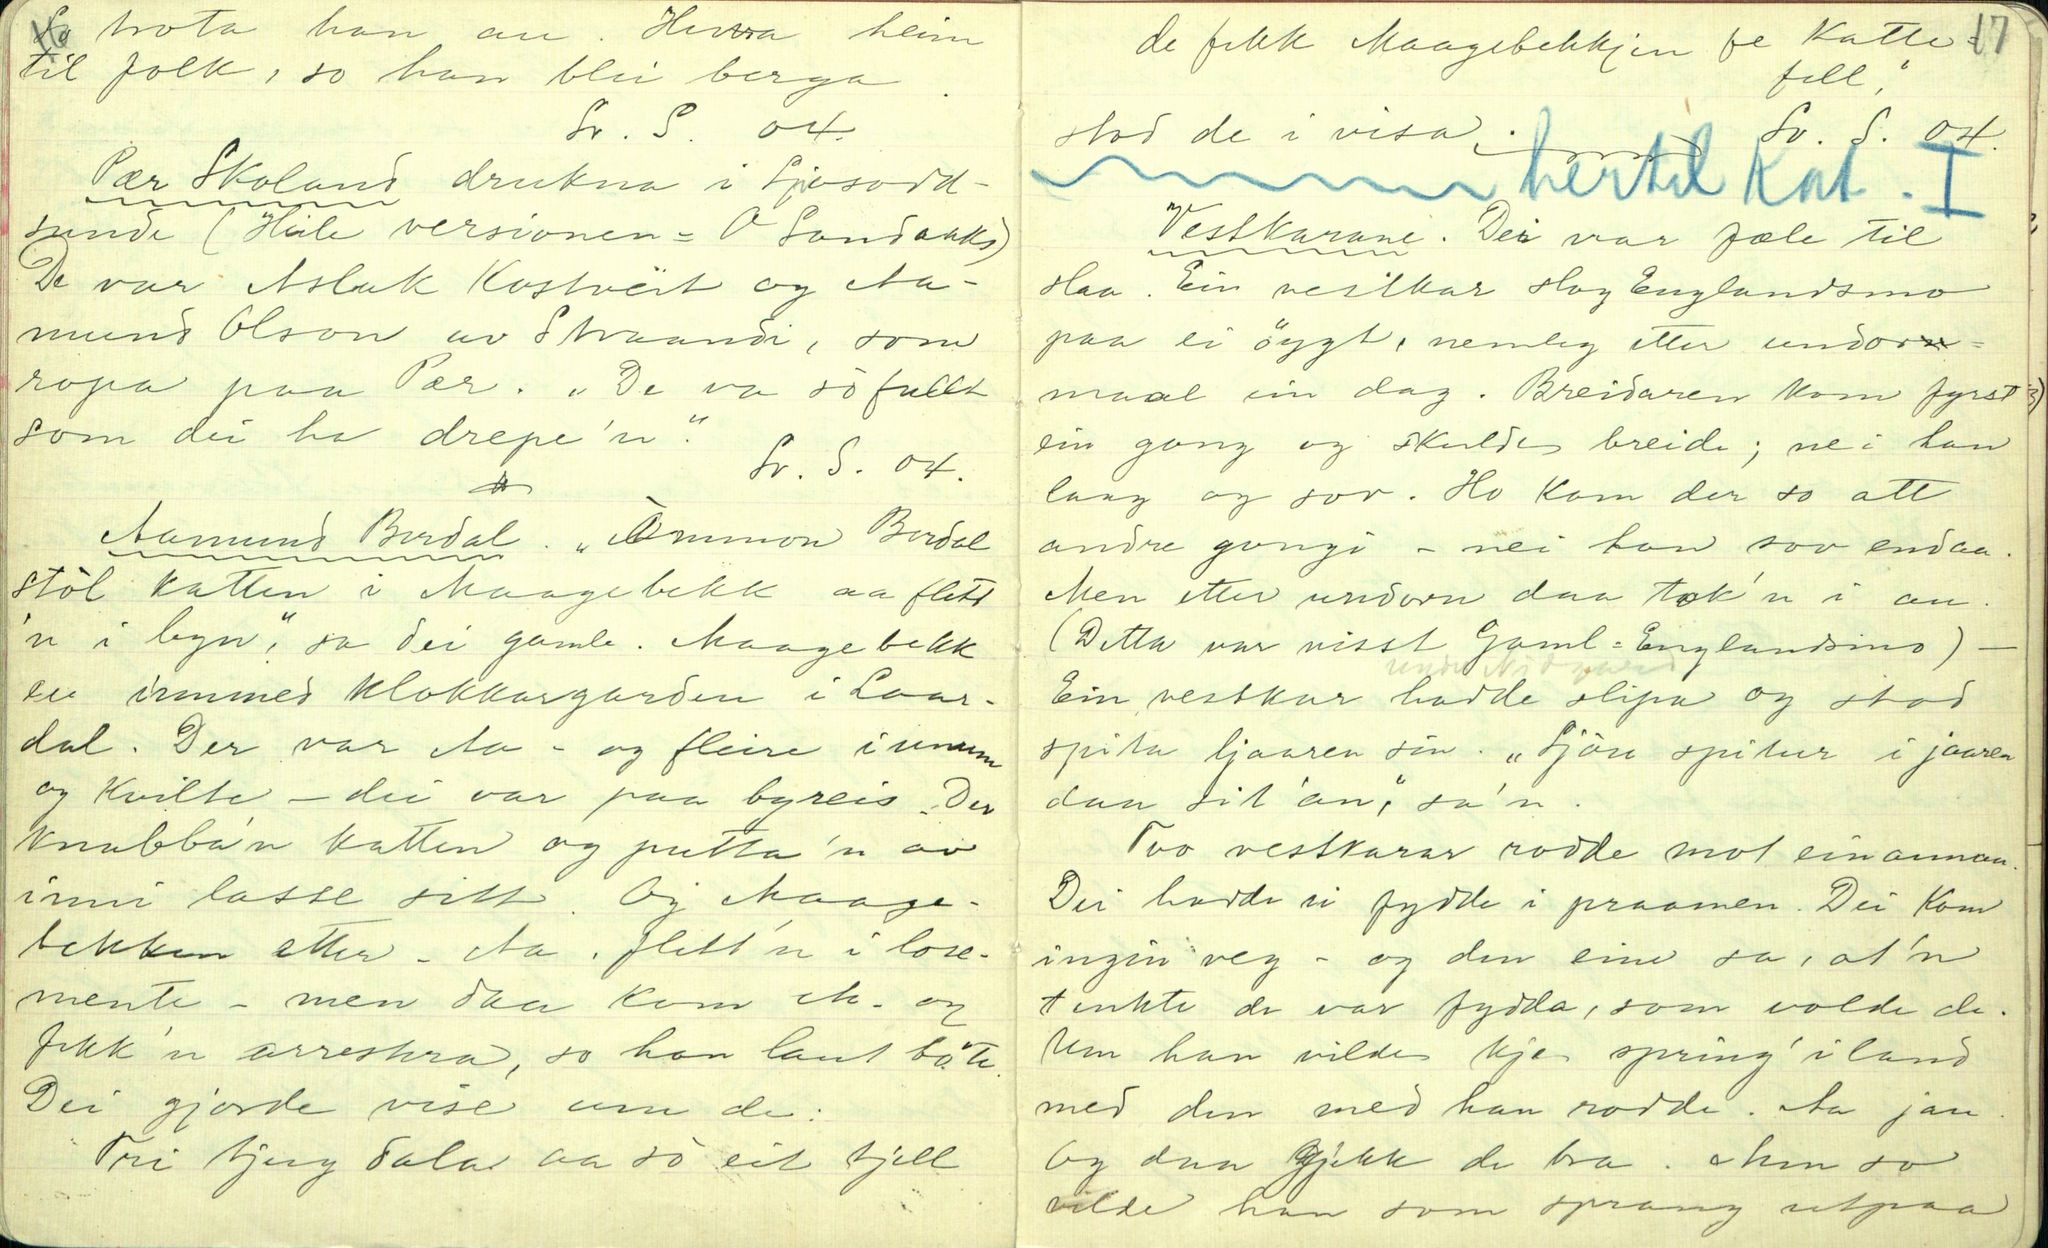 So trota han au. Hiura heim
til folk, so han blei berga.
Sv. S. 04.
Pær Skoland drukna i Ljosodd-
sunde (Heile versionen = O Sandaaks)
De var Aslak Kostveit og Aa-
mund Olson av Straandi, som
ropa paa Pær. "De va sò fullt
som dei ha drepe'n".
Sv. S. 04.
Aamund Bordal. "Òmmon Bordal
stòl katten i Maagebekk aa flett
'n i byn," sa dei gamle. Maagebekk
er innmed klokkargarden i Laar-
dal. Der var Aa - og fleire innum
og kvilte - dei var paa byreis. Der
knabba'n katten og putta'n av
inni lasse sitt. Og Maage-
bekken etter - Aa. flett'n i lose-
mente - men daa kom M. og
fekk'n arrestera, so han laut bøte.
Dei gjorde vise um de:
Tri tjug dala aa sò eit fjell
17
de fekk Maagebekkjen fe Katte-
fell,"
stod de i visa. Sv. S. 04.
hertil Kat. I
Vestkarane. Dei var fæle til
slaa. Ein vestkar slog Englandsmo
paa ei öygt, nemleg etter undorn-
maal ein dag. Breidaren kom fyrst
ein gong og skulde breide; nei han
laag og sov. Ho kom der so att
andre gongi - nei han sov endaa.
Men etter undorn daa tok'n i au.
(Detta var visst Gaml-Englandsmo) -
Ein vestkar hadde slipa og stod
spita ljaaren sin. "Sjòn spitur i jaaren
daa sit'an," sa'n.
Tvo vestkarar rodde mot einannan.
Dei hadde ei fydde i praamen. Dei kom
ingin veg - og den eine sa, at'n
tenkte de var fydda, som volde de.
Um han vilde kje spring' i land
med den med han rodde. Aa jau.
Og daa gjekk de bra. Men so
vilde han som sprang utpaa